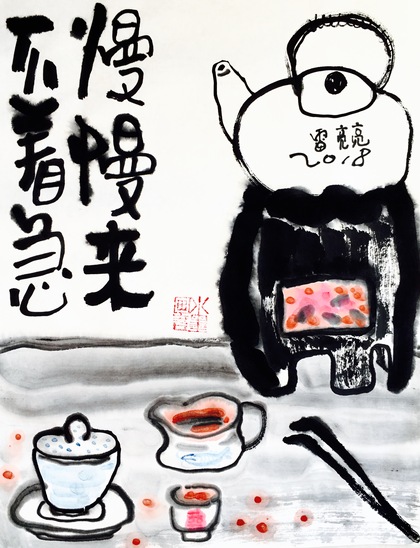 慢慢来
不着急
雷亮
2018